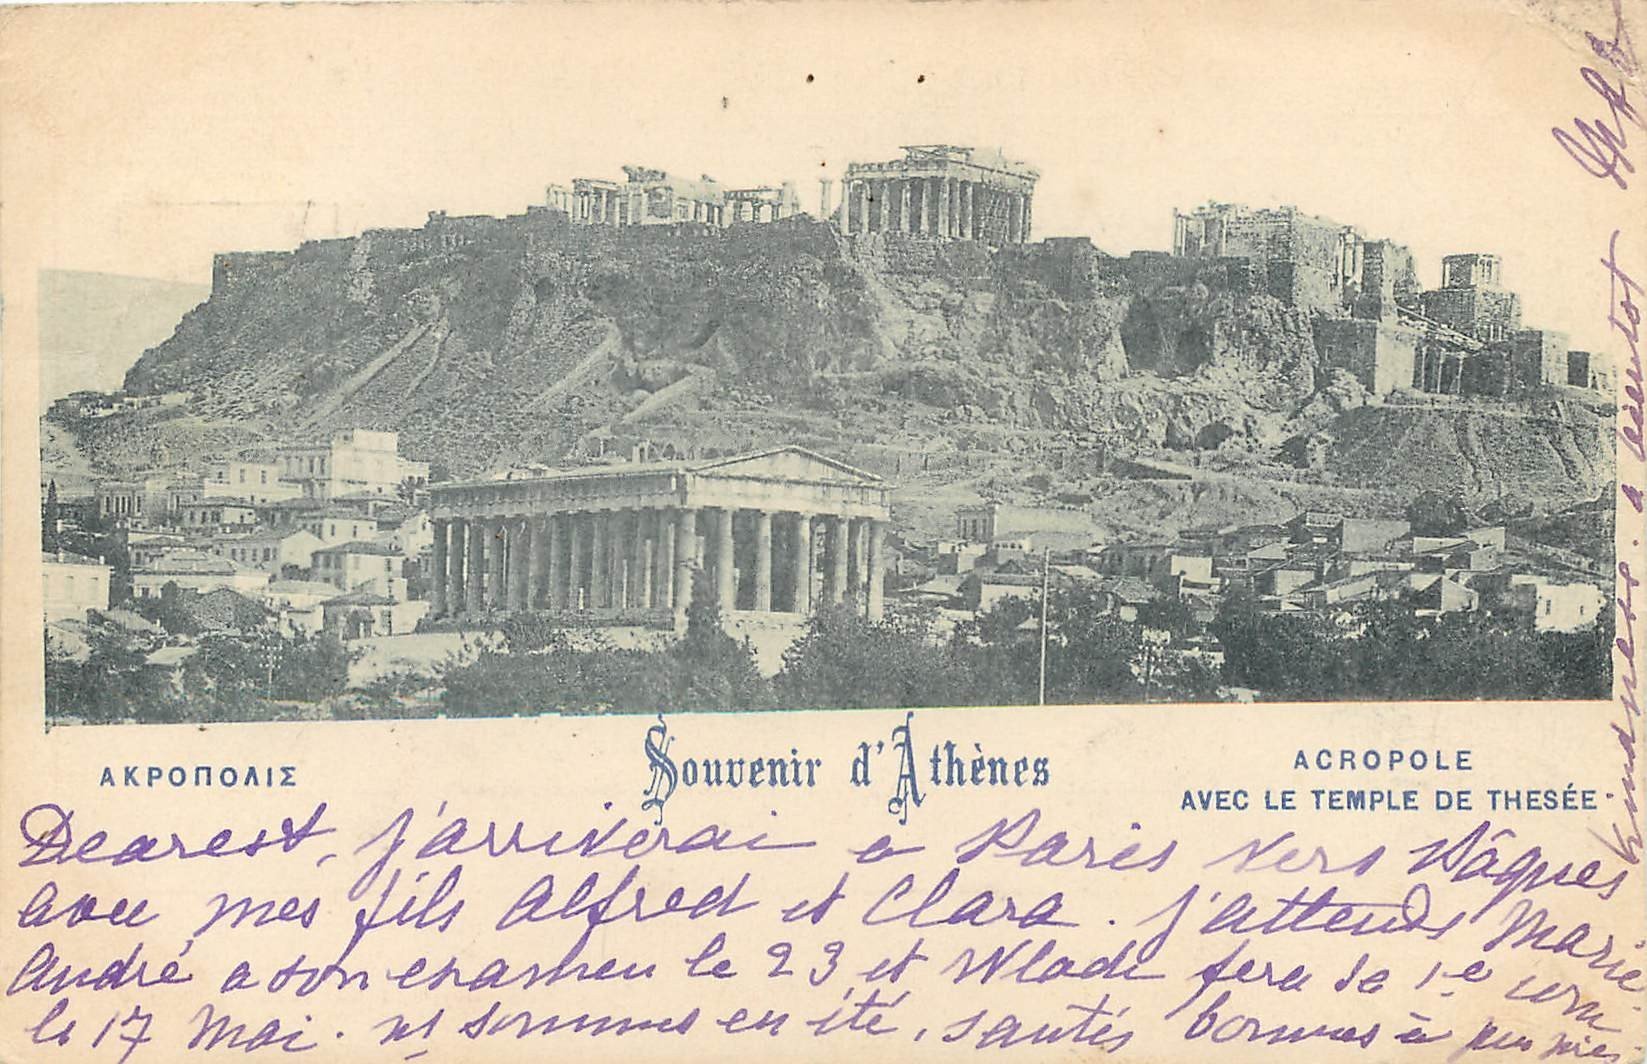 ΑΚΡΟΠΟΛΙΣ
Souvenir d'Athènes
ACROPOLE
AVEC LE TEMPLE DE THESÉE
Dearest, j'arriverai a Paris vers Pâques
avec mes fils Alfred et Clara. j'attends Marie
André a son examen le 23 et Wlade fera sa 1e com
le 17 Mai. ns sommes en été, santés bonnes à peu près
Kindnesse. a bientot